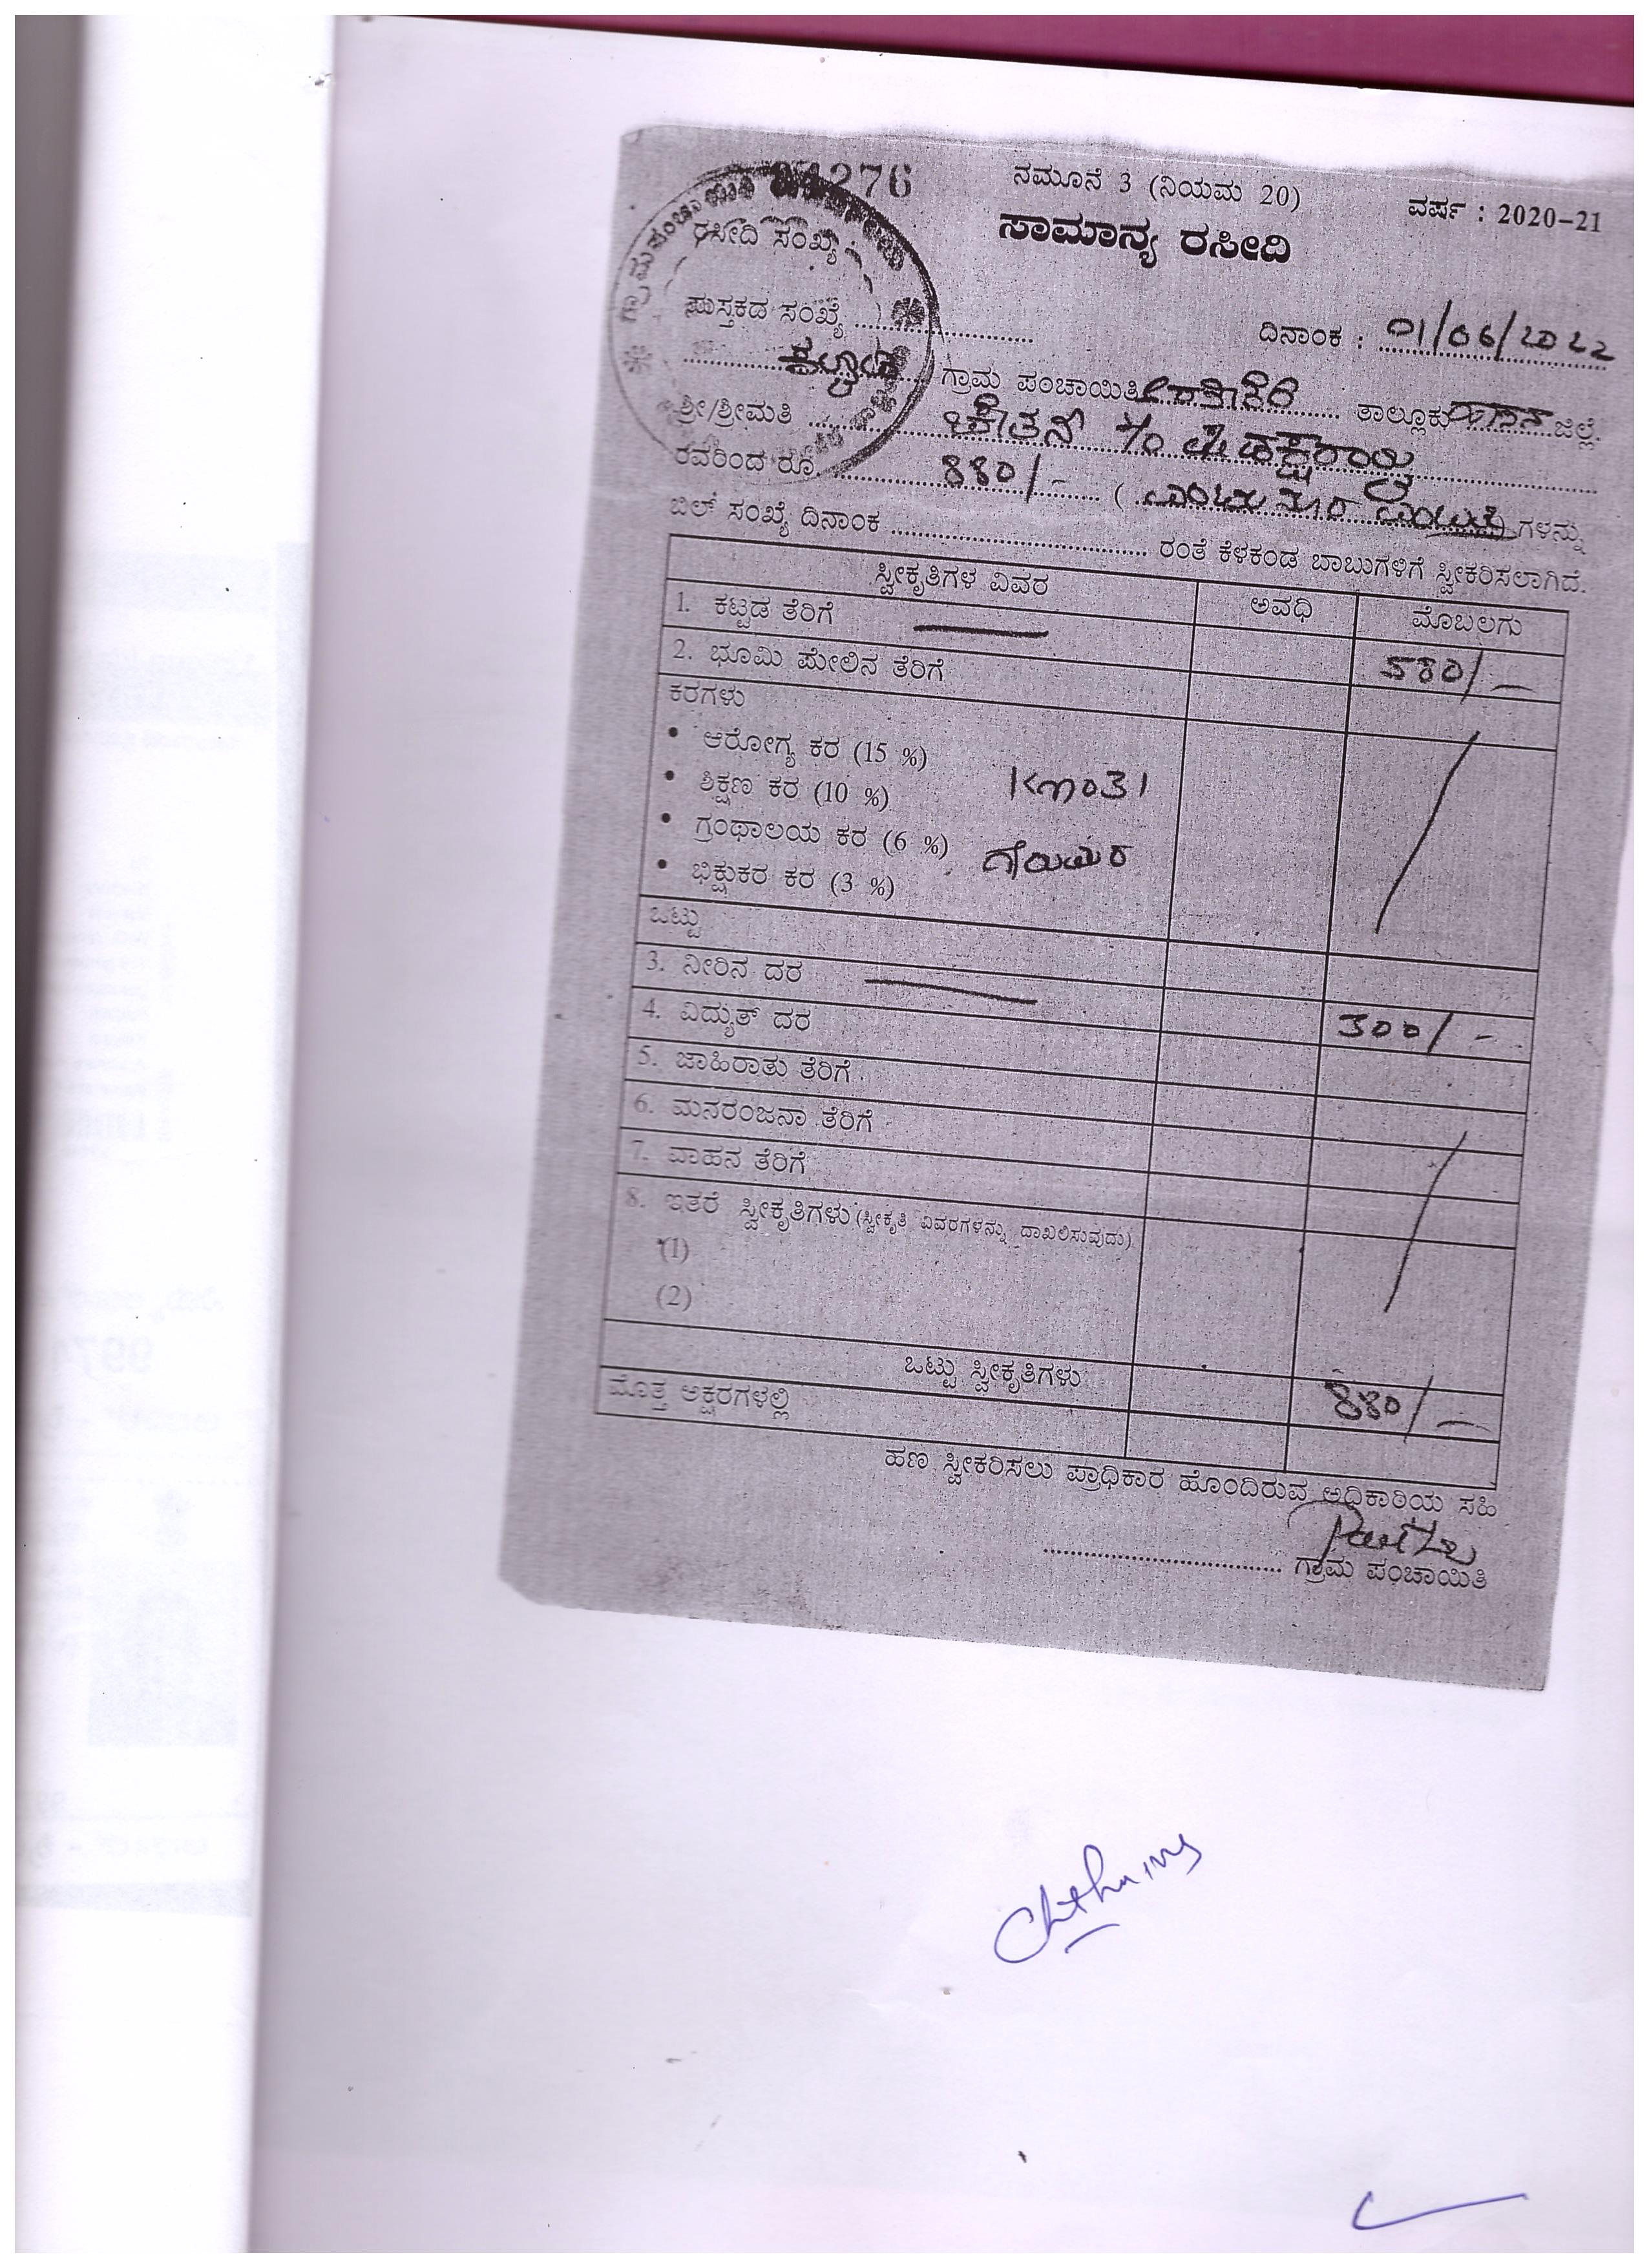 276
ನಮೂನೆ 3 (ನಿಯಮ 20)
ವರ್ಷ : 2020-21
ಸಾಮಾನ್ಯ ರಸೀದಿ
ರಸೀದಿ ಸಂಖ್ಯೆ
ಪುಸ್ತಕದ ಸಂಖ್ಯೆ
ದಿನಾಂಕ : 01/06/2022
ಗ್ರಾಮ ಪಂಚಾಯಿತಿ ತಾಲ್ಲೂಕು ಜಿಲ್ಲೆ.
ಶ್ರೀ/ಶ್ರೀಮತಿ ಚೇತನ್
ರವರಿಂದ ರೂ. 880/- ( ಎಂಟು ನೂರ ಎಂಬತ್ತು ) ಗಳನ್ನು
ಬಿಲ್ ಸಂಖ್ಯೆ ದಿನಾಂಕ ರಂತೆ ಕೆಳಕಂಡ ಬಾಬುಗಳಿಗೆ ಸ್ವೀಕರಿಸಲಾಗಿದೆ.
ಸ್ವೀಕೃತಿಗಳ ವಿವರ ಅವಧಿ ಮೊಬಲಗು
1. ಕಟ್ಟಡ ತೆರಿಗೆ 580/-
2. ಭೂಮಿ ಮೇಲಿನ ತೆರಿಗೆ
ಕರಗಳು
• ಆರೋಗ್ಯ ಕರ (15 %)
• ಶಿಕ್ಷಣ ಕರ (10 %)
• ಗ್ರಂಥಾಲಯ ಕರ (6 %)
• ಭಿಕ್ಷುಕರ ಕರ (3 %)
ಒಟ್ಟು
3. ನೀರಿನ ದರ 300/-
4. ವಿದ್ಯುತ್ ದರ
5. ಜಾಹಿರಾತು ತೆರಿಗೆ
6. ಮನರಂಜನಾ ತೆರಿಗೆ
7. ವಾಹನ ತೆರಿಗೆ
8. ಇತರೆ ಸ್ವೀಕೃತಿಗಳು (ಸ್ವೀಕೃತಿ ವಿವರಗಳನ್ನು ದಾಖಲಿಸುವುದು)
(1)
(2)
ಒಟ್ಟು ಸ್ವೀಕೃತಿಗಳು 880/-
ಮೊತ್ತ ಅಕ್ಷರಗಳಲ್ಲಿ
ಹಣ ಸ್ವೀಕರಿಸಲು ಪ್ರಾಧಿಕಾರ ಹೊಂದಿರುವ ಅಧಿಕಾರಿಯ ಸಹಿ
ಗ್ರಾಮ ಪಂಚಾಯಿತಿ